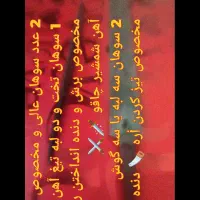 2 عدد سوهان عالی و مخصوص
1 سوهان تخت و دو لبه تیغ آهن
مخصوص برش و دنده انداختن ر
آهن شمشیر چاقو
2 سوهان سه لبه یا سه گوش
مخصوص تیز کردن اره دنده